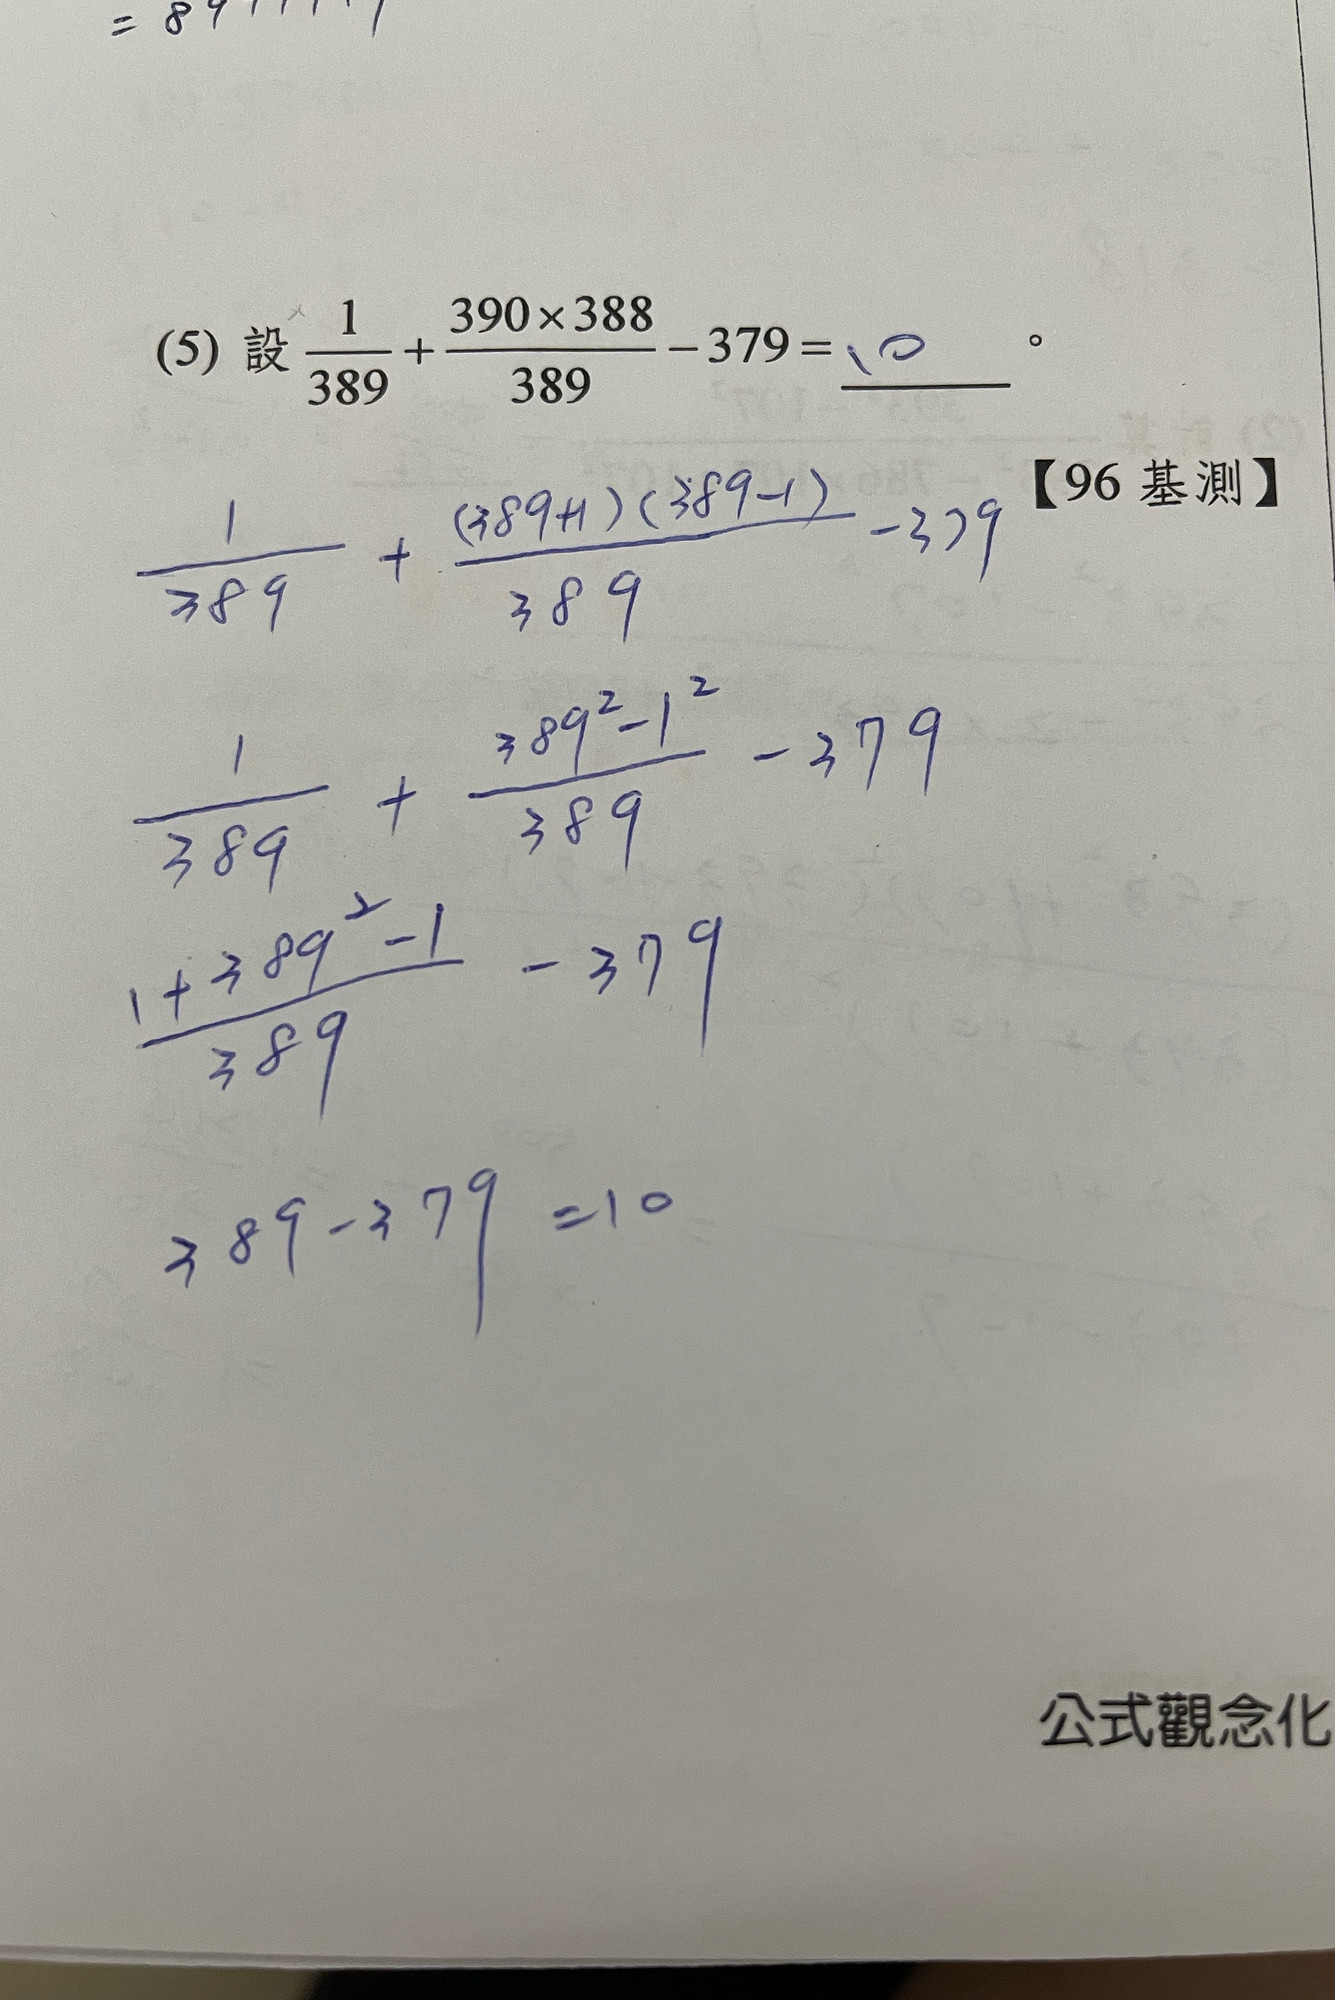 (5) 設 1/389 + 390×388/389 − 379 = 10 。
【96 基測】
1/389 + (389+1)(389-1)/389 - 379
1/389 + 389²-1²/389 - 379
1+389²-1/389 - 379
389-379 =10
公式觀念化